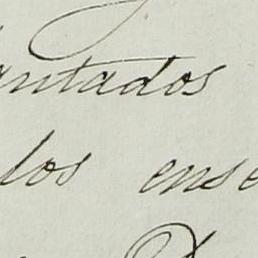 antados
los ense